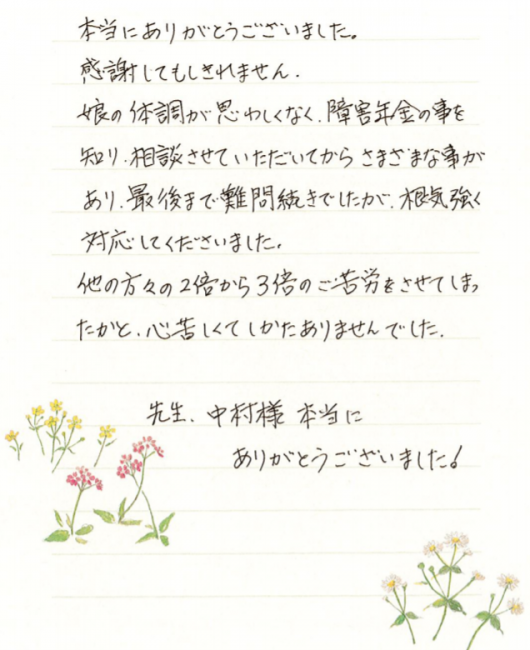 本当にありがとうございました。
感謝してもしきれません.
娘の体調が思わしくなく、障害年金の事を
知り、相談させていただいてから さまざまな事が
あり、最後まで難問続きでしたが、根気強く
対応してくださいました。
他の方々の2倍から3倍のご苦労をさせてしまっ
たかと、心苦しくてしかたありませんでした.
先生、中村様 本当に
ありがとうございました!